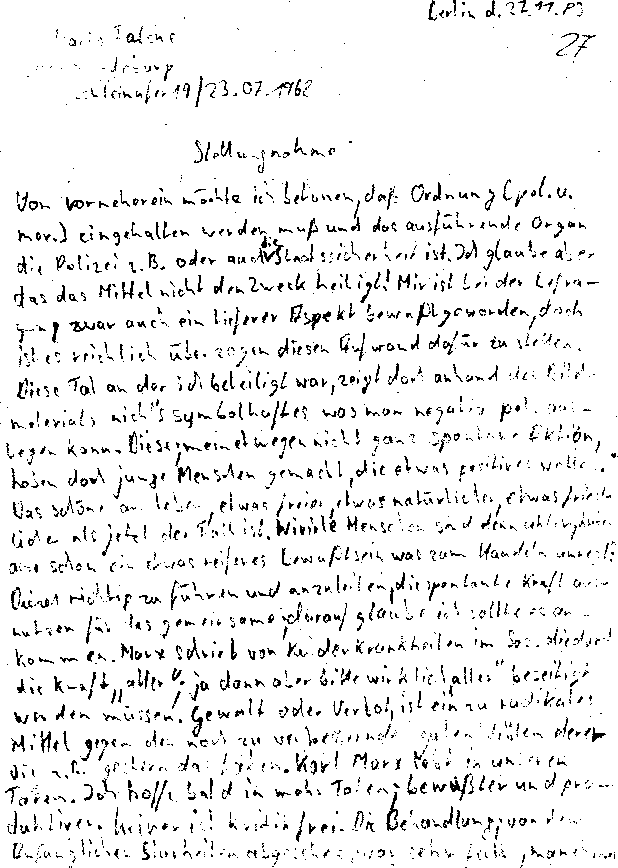 Berlin d. 27.11.83
27
19/23.07.1962
Stellungnahme
Von vorneherein möchte ich betonen, daß Ordnung (pol. u.
mor.) eingehalten werden muß und das ausführende Organ
die Polizei z.B. oder auch die Staatssicherheit ist. Ich glaube aber
das das Mittel nicht den Zweck heiligt! Mir ist bei der Befra-
gung zwar auch ein tieferer Aspekt bewußt geworden, doch
ist es reichlich überzogen diesen Aufwand dafür zu stellen.
Diese Tat an der ich beteiligt war, zeigt dort anhand des Bild-
materials nichts symbolhaftes was man negativ pol. aus-
legen kann. Diese, meinetwegen nicht ganz spontane Aktion,
haben dort junge Menschen gemacht, die etwas positives
Das schöne am leben, etwas freier, etwas natürlicher, etwas fried-
licher als jetzt der Fall ist. Menschen sind denn
schon ein etwas reiferes Bewußtsein was zum Handeln
Dieses richtig zu führen und anzuleiten, die spontane Kraft aus-
nutzen für das gemeinsame, darauf glaube ich sollte es an-
kommen. Marx schrieb von Kinderkrankheiten im Soz. die durch
die Kraft „aller", ja dann aber bitte wirklich „aller" beseitigt
werden müssen. Gewalt oder Verbot, ist ein zu radikales
Mittel gegen den noch zu verbessernde guten derer
die z.B. gestern da Karl Marx lebt in unseren
Taten. Ich hoffe bald in mehr Taten, bewußter und pro-
duktiver. keiner ist kritikfrei. Die Behandlung, von den
anfänglichen abgesehen, war sehr